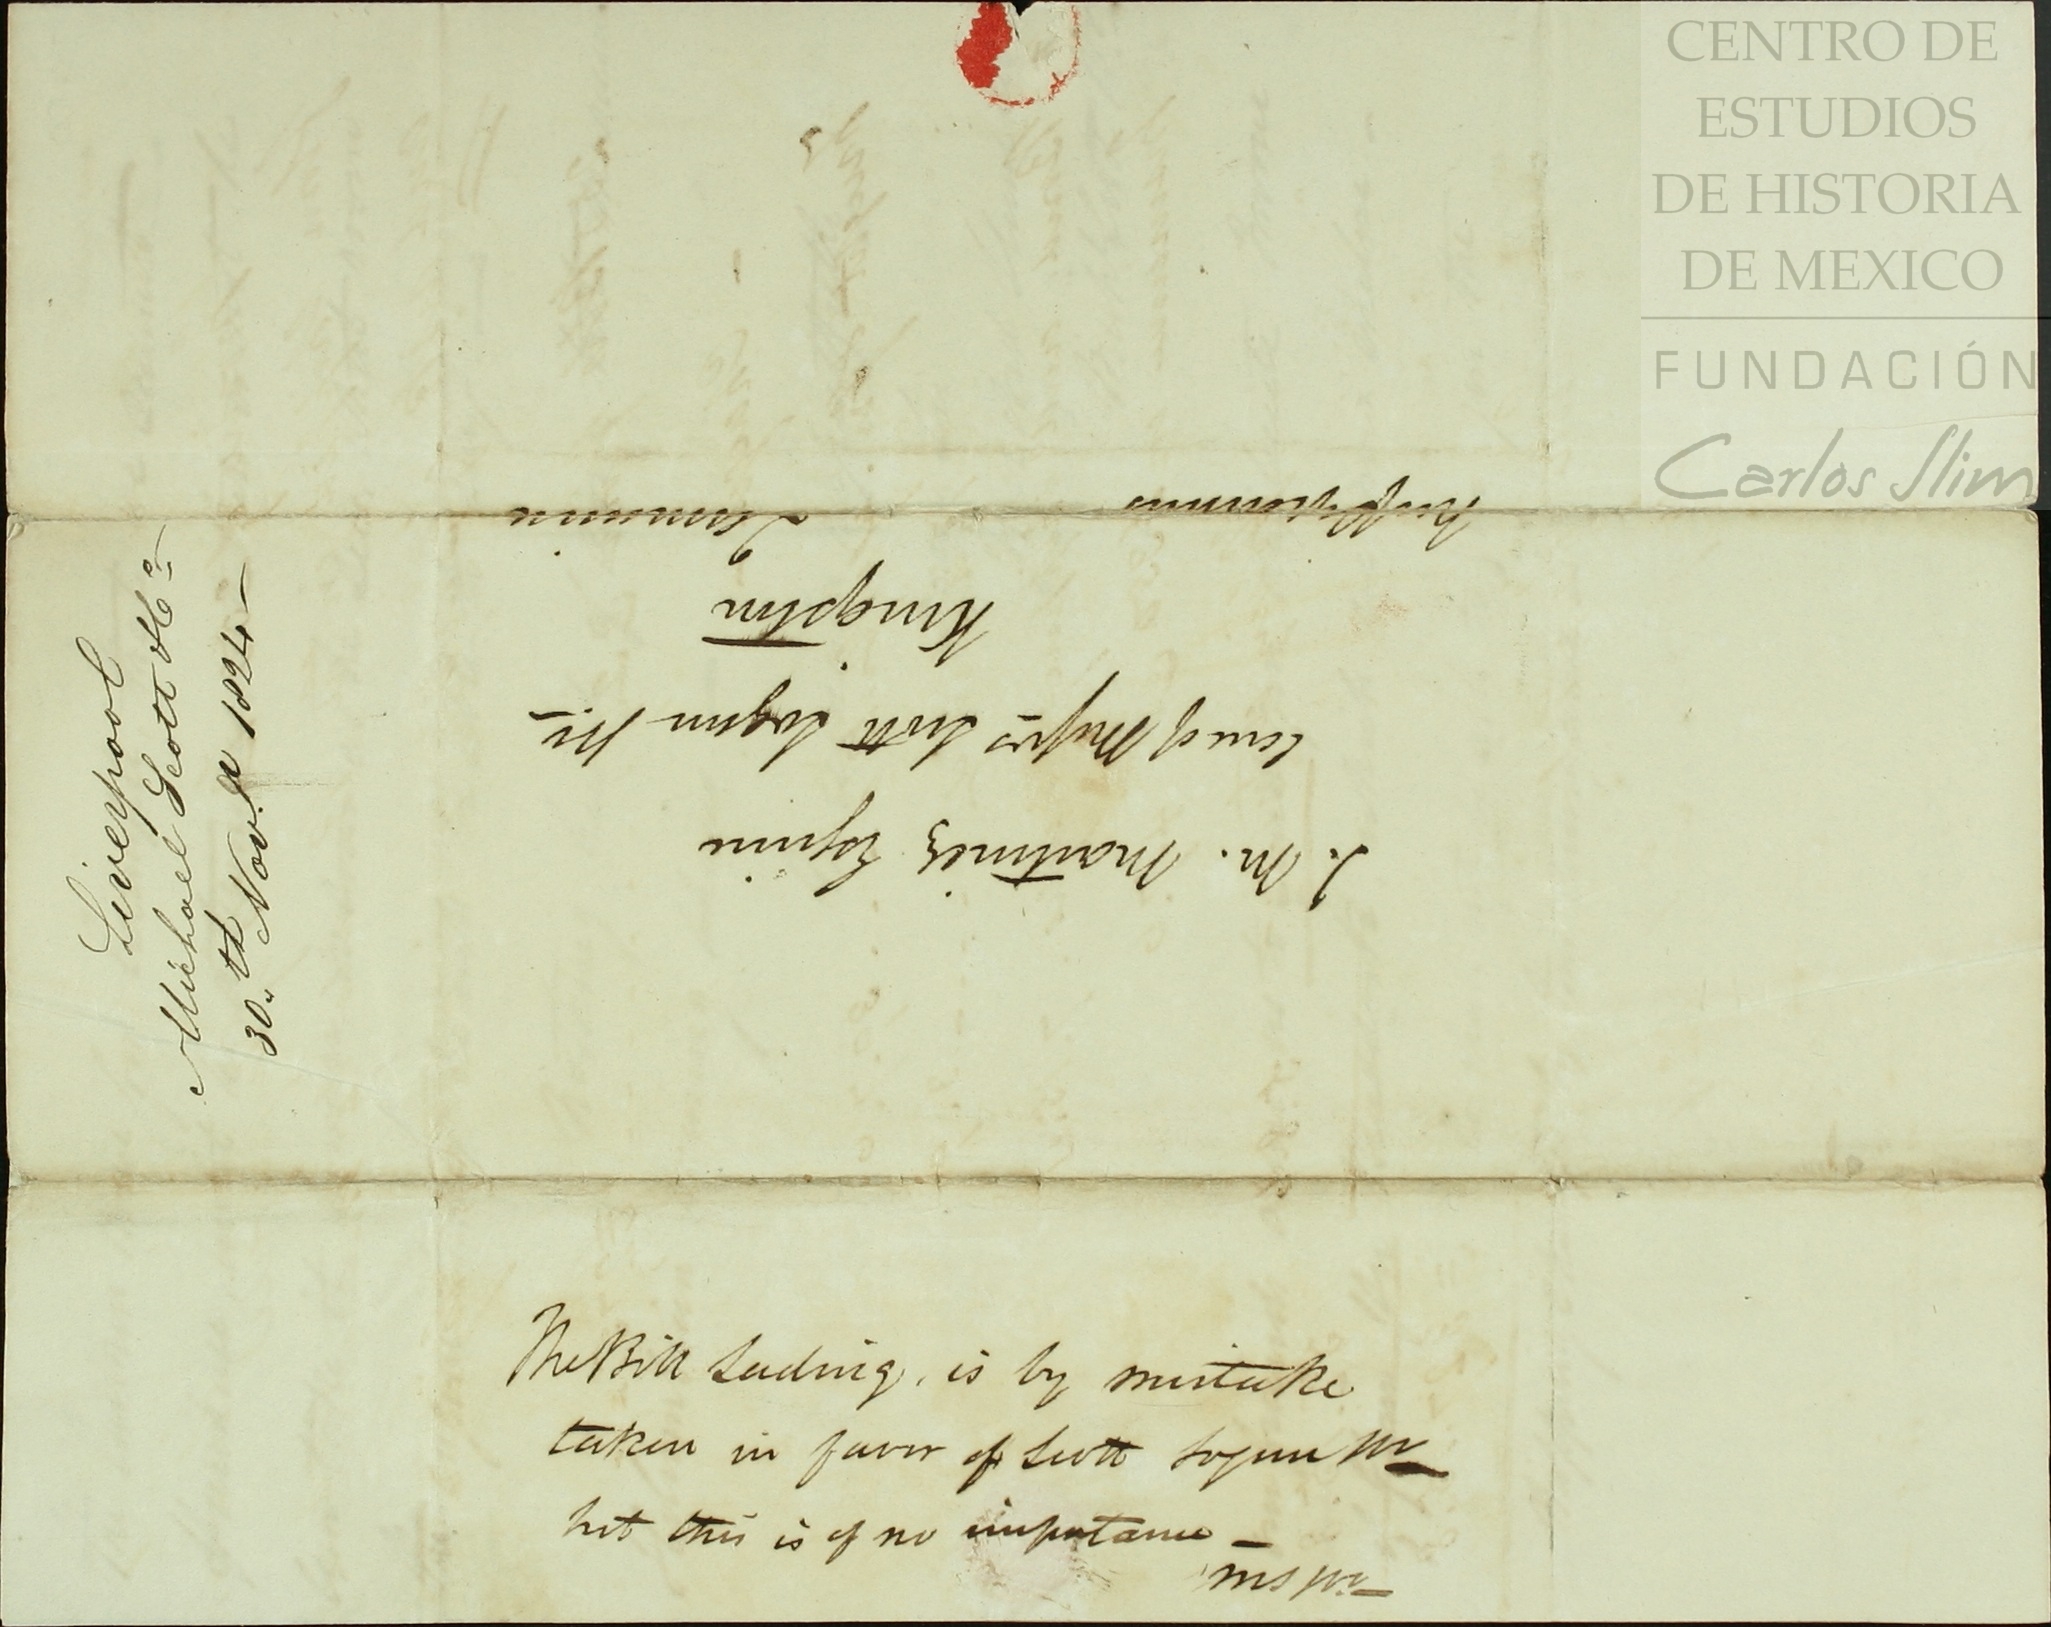 CENTRO DE
ESTUDIOS
DE HISTORIA
DE MEXICO
FUNDACIÓN
Carlos Slim
Liverpool
Michael Scott & Co
30th Nov. 1824
J. M. Martinez Esquire
Care of Messrs Scott Logan &Co
Kingston
Jamaica
The Bill Lading, is by mistake
taken in favor of Scott Logan &Co
but this is of no importance
MS &Co